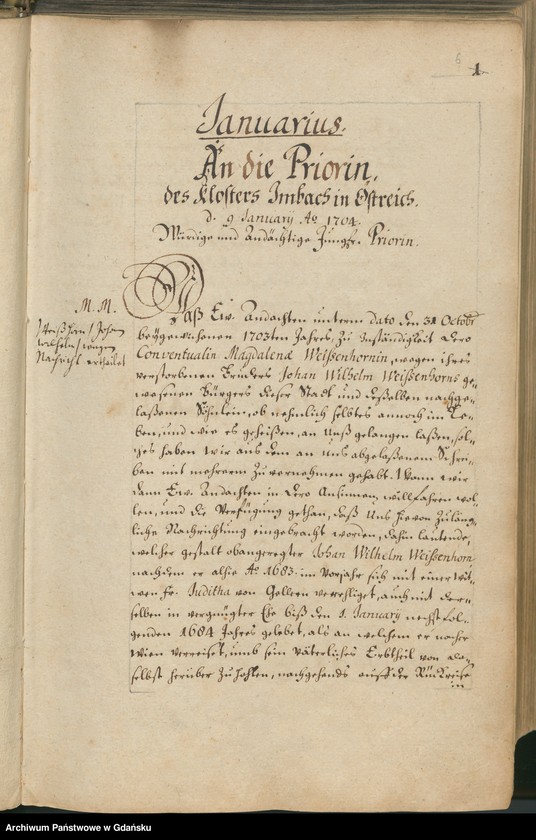 6
1
Januarius.
An die Priorin,
des Klosters Imbach in Östreich.
d. 9 January Aô 1704.
Würdige und Andächtige Jungfr. Priorin.
M. M.
Weißhorn / Johan
Wilhelm / wegen
Nachricht ertheilet
Waß Ew. Andachten unterm dato den 31 Octobr
des 1703ten Jahres, zu Inständigkeit Dero
Conventualin Magdalenæ Weissenhornin, wegen ihres
verstorbenen Bruders Johan Wilhelm Weissenhorns ge„
wesenen Bürgers dieser Stadt und deßelben nachge„
laßenen Söhnlein, ob nehmlich selbtes annoch im Le„
ben, und wie es geheißen, an Unß gelangen laßen, sol„
ches haben wir aus dem an uns abgelaßenem Schrei„
ben mit mehrerm zu vernehmen gehabt. Wann wir
dann Ew. Andachten in Dero Ansinnen, willfahren wol„
len, und die Verfügung gethan, daß Uns hievon zuläng„
liche Nachrichtung eingebracht worden, dahin lautende,
welcher gestalt obangeregter Johan Wilhelm Weissenhorn
nachdem er alhie Aô 1683. im Vorjahr sich mit einer Wit„
wen Fr. Juditha von Gellern verehliget, auch mit der„
selben in vergnügter Ehe biß den 1. January nechst fol„
genden 1684 Jahres gelebet, als an welchem er nacher
Wien verreiset, umb sein väterliches Erbtheil von da„
selbst herüber zu hohlen, nachgehends auff der Rückreise
in
Archiwum Państwowe w Gdańsku